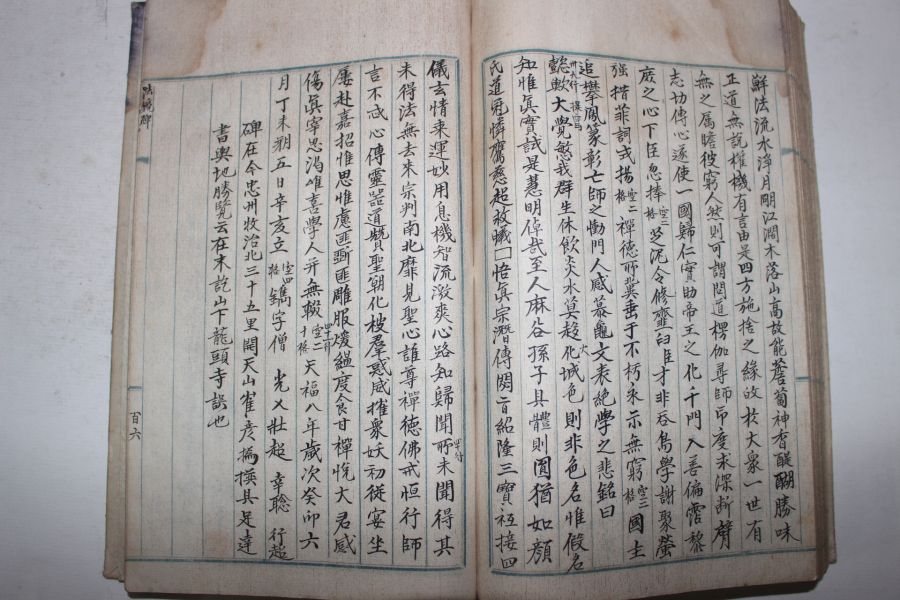 鮮法流水淨月明江濶木落山高故能薝蔔神香醍醐勝味
正道無說權機有言由是四方施捨之緣敀於大衆一世有
無之屬瞻彼窮人然則可謂問道楞伽尋師印度求深断臂
志切傳心遂使一國歸仁實助帝王之化千門入善偏霑黎
庶之心下臣忽捧空一格芝泥令修虀臼臣才非吞鳥學謝聚螢
強措菲詞式揚空二格禪德所冀垂于不朽永示無窮空三格國主
追攀鳳篆彰亡師之慟門人感慕龜文表絶學之悲銘曰
懿歟大覺愍我群生休飮炎水莫趍化城色則非色名惟假名
火
知惟眞實試是慧明倬哉至人麻谷孫子具體則圓猶如顔
氏道冠憐鷹慈超救蟻□悟眞宗潛傳閟旨紹隆三寶祗接四
儀玄情乘運妙用息機智流激爽心路知歸聞所未聞得其
未得法無去來宗判南北靡見聖心誰尊禪德佛戒恒行師
言不忒心傳靈器道贊聖朝化被羣惑威摧衆妖初從宴坐
屢赴嘉招惟思惟慮匪斲匪雕服煖縕度食甘禪悅大君感
傷眞宰忠渴唯喜學人并無輟空二十格天福八年歲次癸卯六
月丁未朔五日辛亥立空四格鐫字僧 光乂壯超 幸聡 行超
碑在今忠州牧治北三十五里開天山崔彦撝撰具足達
書輿地勝覽云在末訖山下龍頭寺誤也
百六